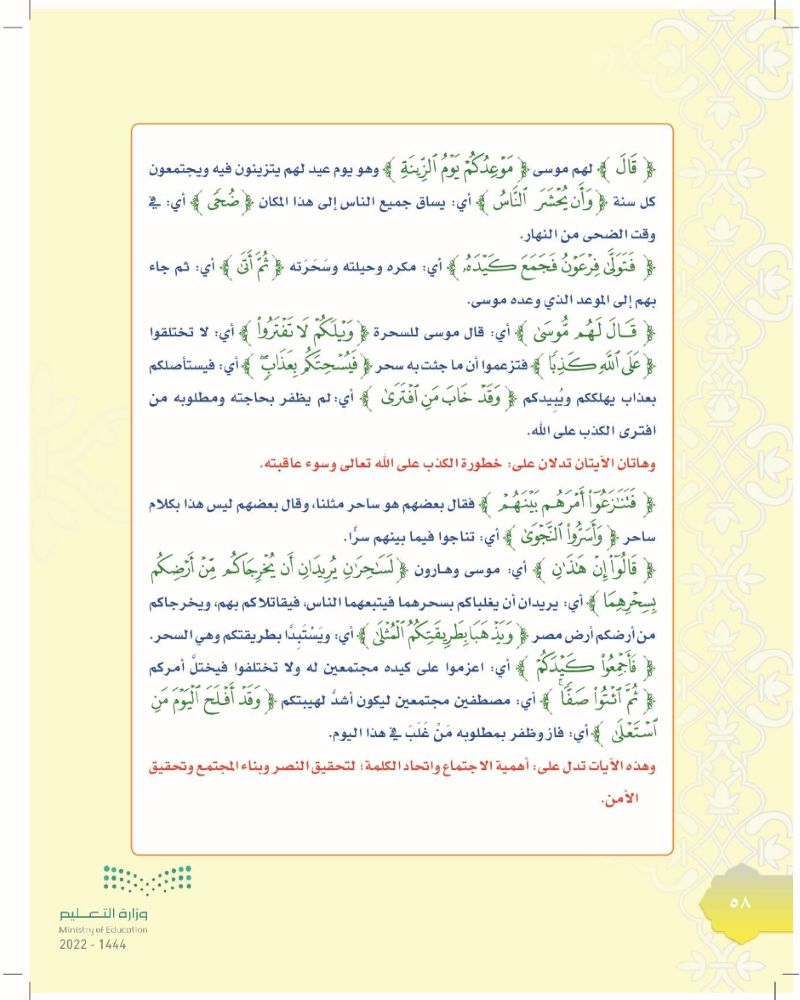 ﴿ قَالَ ﴾ لهم موسى ﴿ مَوْعِدُكُمْ يَوْمُ ٱلزِّينَةِ ﴾ وهو يوم عيد لهم يتزينون فيه ويجتمعون
كل سنة ﴿ وَأَن يُحْشَرَ ٱلنَّاسُ ﴾ أي: يساق جميع الناس إلى هذا المكان ﴿ ضُحًى ﴾ أي: في
وقت الضحى من النهار.
﴿ فَتَوَلَّىٰ فِرْعَوْنُ فَجَمَعَ كَيْدَهُۥ ﴾ أي: مكره وحيلته وسَحَرَته ﴿ ثُمَّ أَتَىٰ ﴾ أي: ثم جاء
بهم إلى الموعد الذي وعده موسى.
﴿ قَالَ لَهُم مُّوسَىٰ ﴾ أي: قال موسى للسحرة ﴿ وَيْلَكُمْ لَا تَفْتَرُوا۟ ﴾ أي: لا تختلقوا
﴿ عَلَى ٱللَّهِ كَذِبًا ﴾ فتزعموا أن ما جئت به سحر ﴿ فَيُسْحِتَكُم بِعَذَابٍۖ ﴾ أي: فيستأصلكم
بعذاب يهلككم ويُبيدكم ﴿ وَقَدْ خَابَ مَنِ ٱفْتَرَىٰ ﴾ أي: لم يظفر بحاجته ومطلوبه من
افترى الكذب على الله.
وهاتان الآيتان تدلان على: خطورة الكذب على الله تعالى وسوء عاقبته.
﴿ فَتَنَـٰزَعُوٓا۟ أَمْرَهُم بَيْنَهُمْ ﴾ فقال بعضهم هو ساحر مثلنا، وقال بعضهم ليس هذا بكلام
ساحر ﴿ وَأَسَرُّوا۟ ٱلنَّجْوَىٰ ﴾ أي: تناجوا فيما بينهم سرًّا.
﴿ قَالُوٓا۟ إِنْ هَـٰذَٰنِ ﴾ أي: موسى وهارون ﴿ لَسَـٰحِرَٰنِ يُرِيدَانِ أَن يُخْرِجَاكُم مِّنْ أَرْضِكُم
بِسِحْرِهِمَا ﴾ أي: يريدان أن يغلباكم بسحرهما فيتبعهما الناس، فيقاتلاكم بهم، ويخرجاكم
من أرضكم أرض مصر ﴿ وَيَذْهَبَا بِطَرِيقَتِكُمُ ٱلْمُثْلَىٰ ﴾ أي: ويَسْتَبِدَّا بطريقتكم وهي السحر.
﴿ فَأَجْمِعُوا۟ كَيْدَكُمْ ﴾ أي: اعزموا على كيده مجتمعين له ولا تختلفوا فيختلَّ أمركم
﴿ ثُمَّ ٱئْتُوا۟ صَفًّاۚ ﴾ أي: مصطفين مجتمعين ليكون أشدَّ لهيبتكم ﴿ وَقَدْ أَفْلَحَ ٱلْيَوْمَ مَنِ
ٱسْتَعْلَىٰ ﴾ أي: فاز وظفر بمطلوبه مَنْ غَلَبَ في هذا اليوم.
وهذه الآيات تدل على: أهمية الاجتماع واتحاد الكلمة؛ لتحقيق النصر وبناء المجتمع وتحقيق
الأمن.
٥٨
وزارة التعليم
Ministry of Education
2022 - 1444